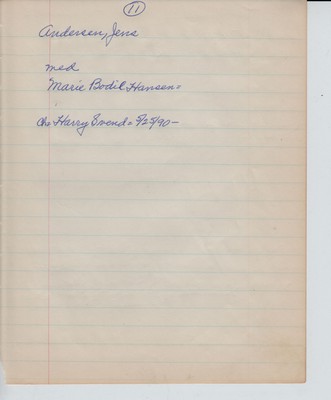 11
Andersen, Jens
msd
Marie Bodil Hansen=
Ch= Harry Svend= 5/25/90-